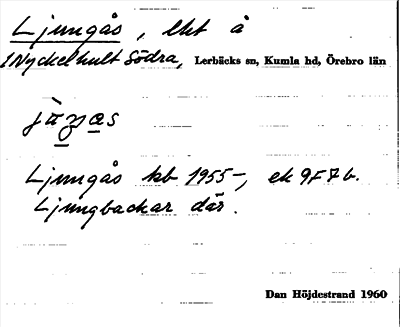 Ljungås, lht å
Nyckelhult Södra, Lerbäcks sn, Kumla hd, Örebro län
Ljungås kb 1955-, ek 9F7b.
Ljungbackar där.
Dan Höjdestrand 1960